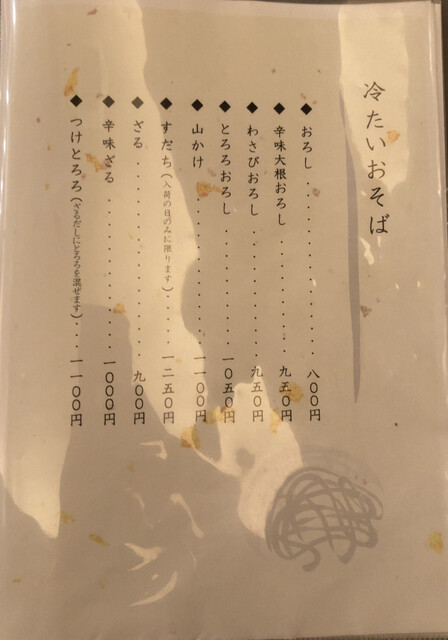 冷たいおそば
◆おろし・・・・・・・・・・・・・・・八〇〇円
◆辛味大根おろし・・・・・・・・・・九五〇円
◆わさびおろし・・・・・・・・・・・九五〇円
◆とろろおろし・・・・・・・・・・一〇五〇円
◆山かけ・・・・・・・・・・・・・一一〇〇円
◆すだち（入荷の日のみに限ります）・・・・・一二五〇円
◆ざる・・・・・・・・・・・・・・・九〇〇円
◆辛味ざる・・・・・・・・・・・・一〇〇〇円
◆つけとろろ（ざるだしにとろろを混ぜます）・・・一一〇〇円